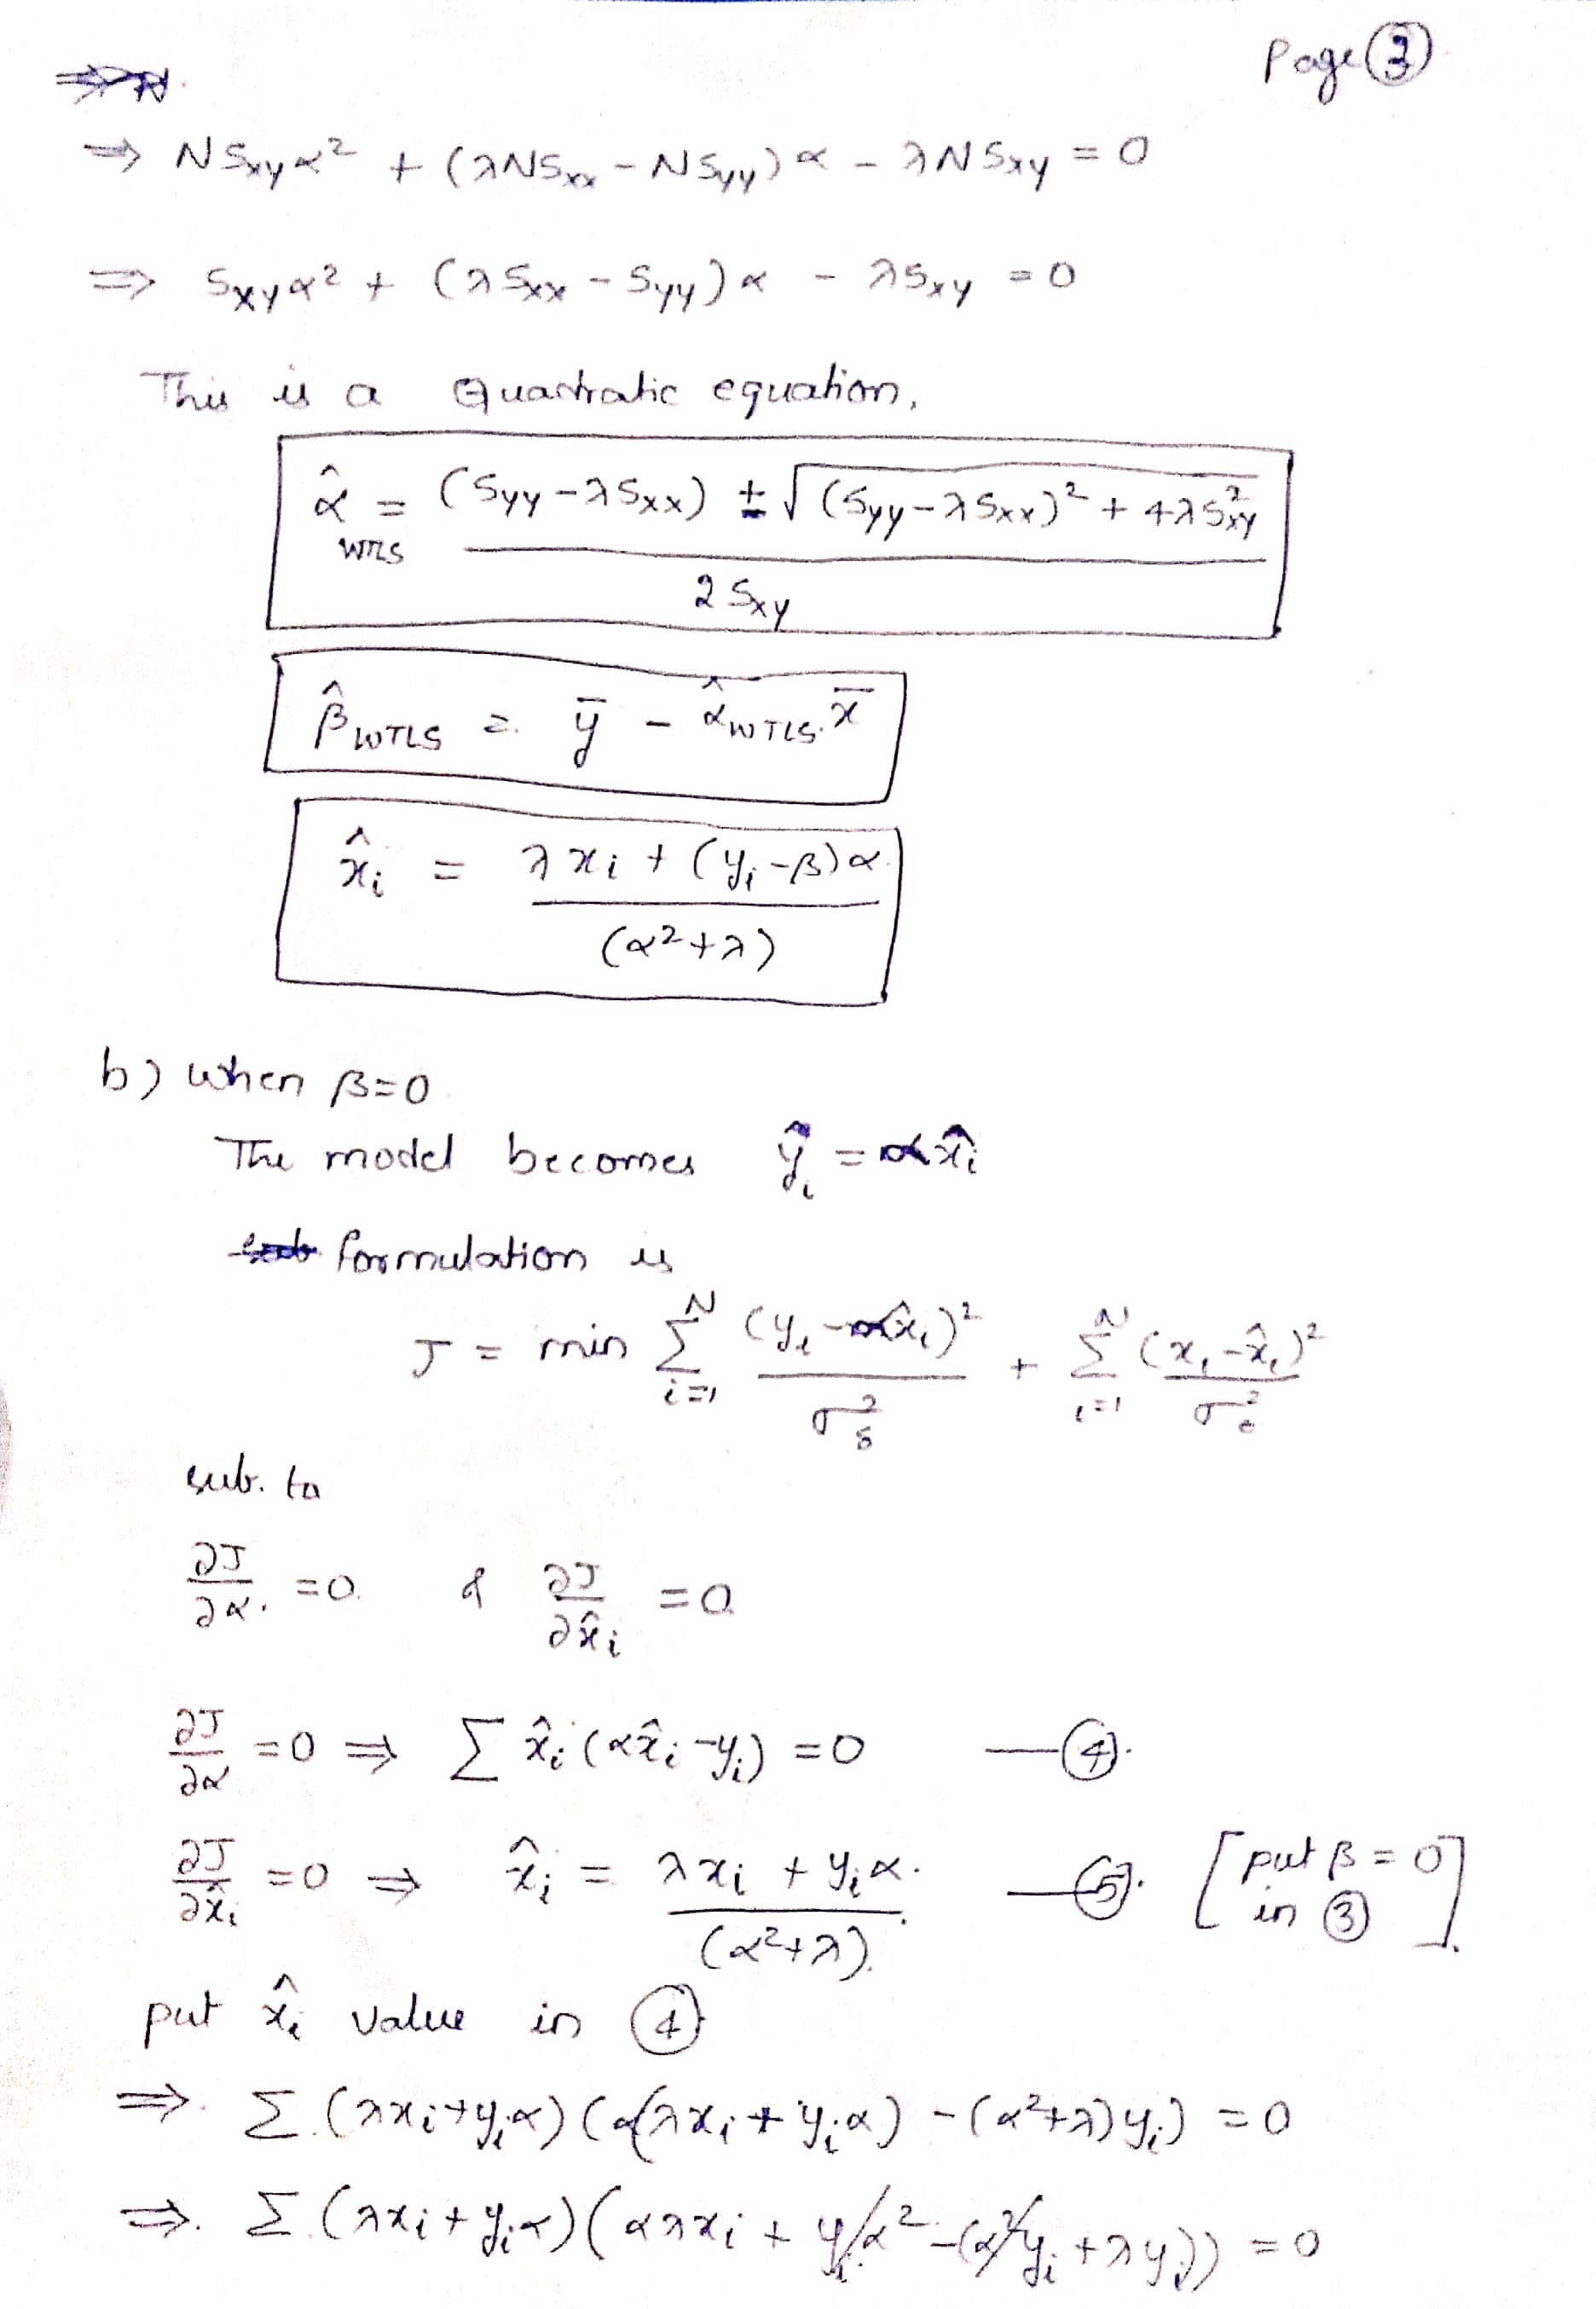 Page ③
⇒ N Sxy α² + (λNSxx - NSyy) α - λN Sxy = 0
⇒ Sxy α² + (λSxx - Syy) α - λSxy = 0
This is a Quadratic equation,
α̂ WTLS = ((Syy - λSxx) ± √((Syy - λSxx)² + 4λS²xy)) / 2Sxy
β̂ WTLS = ȳ - α̂ WTLS. x̄
x̂i = (λxi + (yi - β)α) / (α² + λ)
b) when β=0
The model becomes ŷi = αx̂i
formulation is
J = min Σ i=1 N (yi - αx̂i)² / σ²δ + Σ i=1 N (xi - x̂i)² / σ²ε
sub. to
∂J/∂α. = 0. & ∂J/∂x̂i = 0
∂J/∂α = 0 ⇒ Σ x̂i (αx̂i - yi) = 0 —④.
∂J/∂x̂i = 0 ⇒ x̂i = (λxi + yiα) / (α² + λ). —⑤. [put β = 0 in ③]
put x̂i value in ④
⇒. Σ.(λxi + yiα)(α(λxi + yiα) - (α² + λ)yi) = 0
⇒. Σ.(λxi + yiα)(αλxi + yiα² - (α²yi + λyi)) = 0